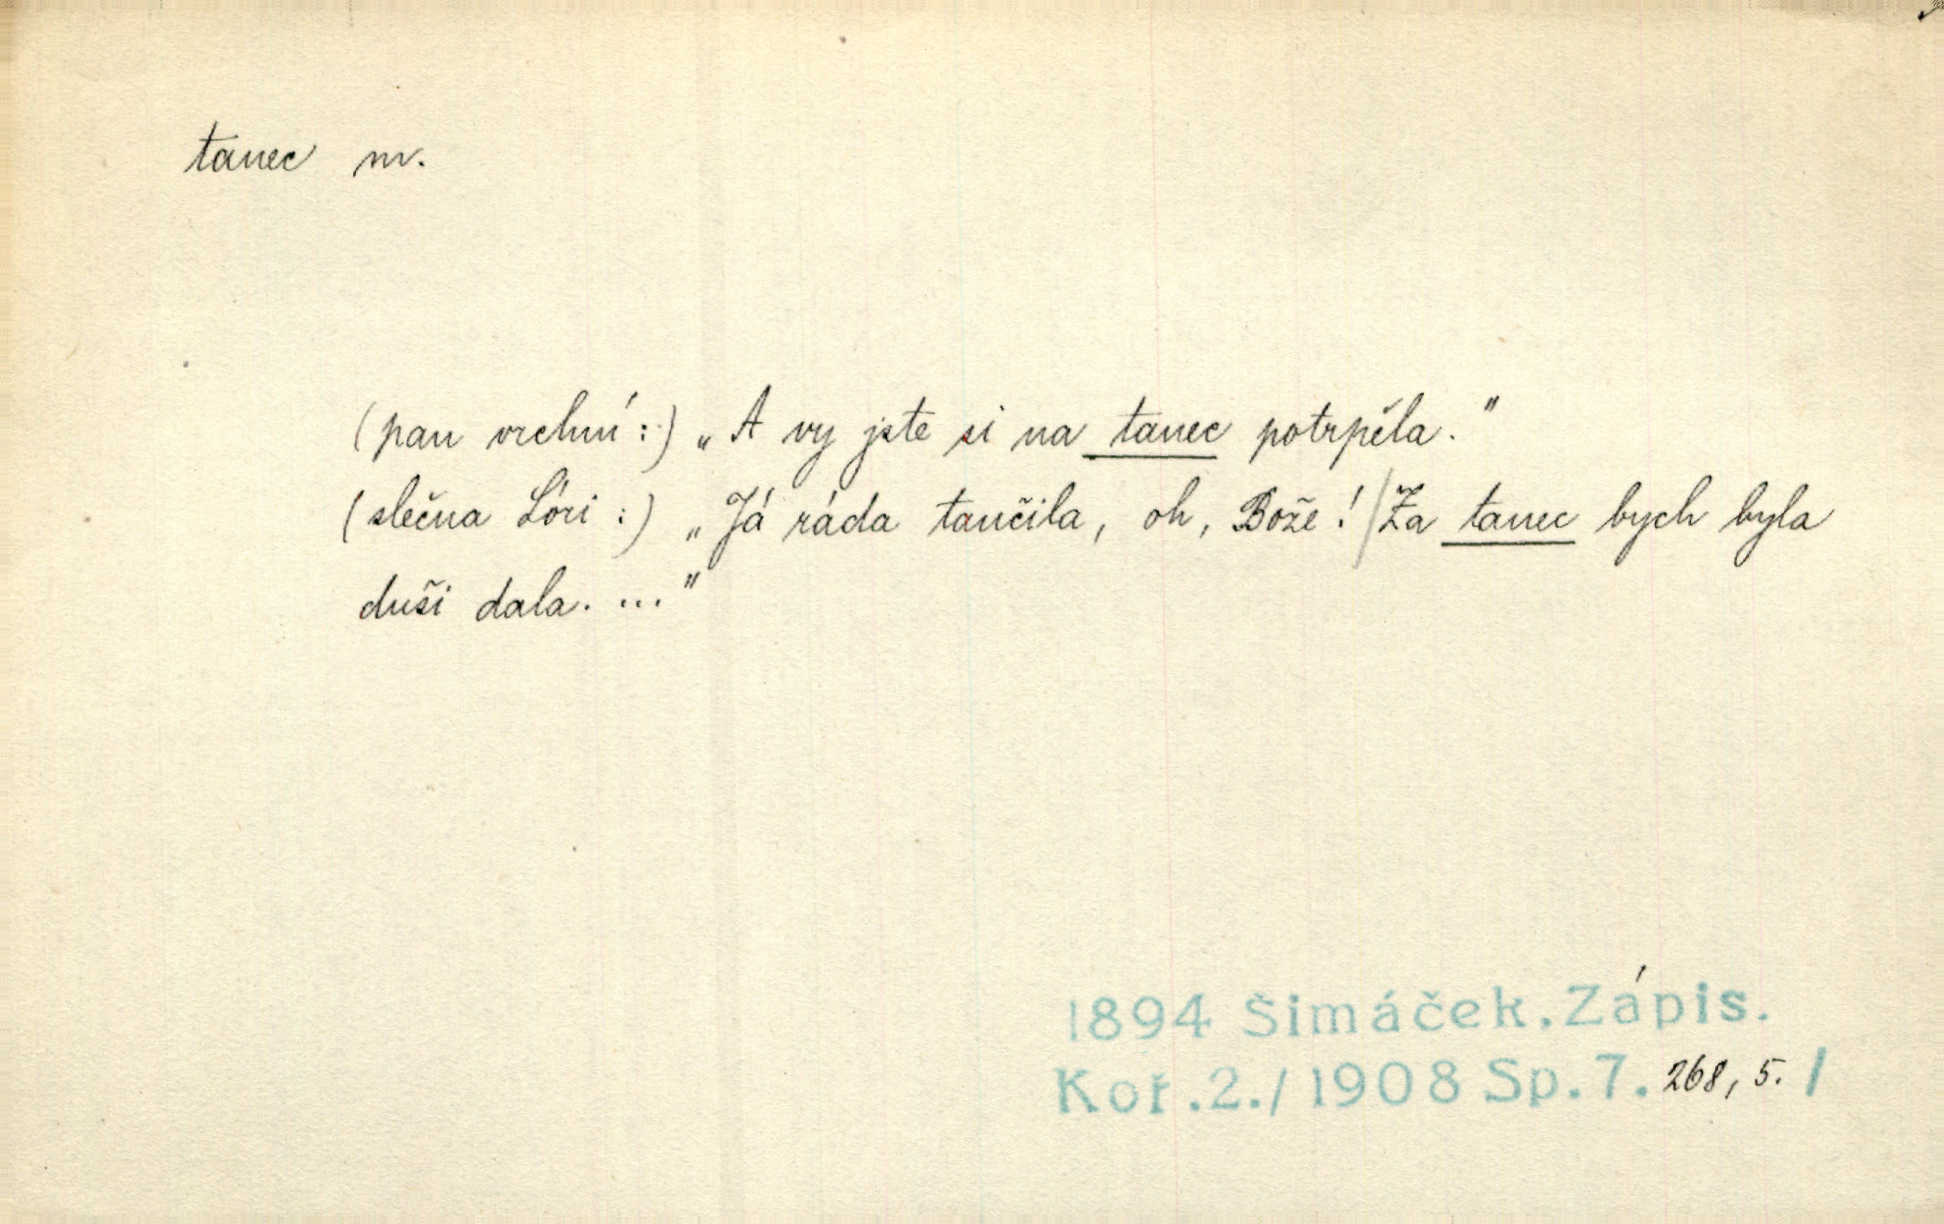 tanec m.
(pan vrchní:) „A vy jste si na tanec potrpěla."
(slečna Lóri:) „Já ráda tančila, oh, Bože!/Za tanec bych byla
duši dala. ..."
1894 Šimáček.Zápis.
Koř.2./1908 Sp.7. 268, 5. /